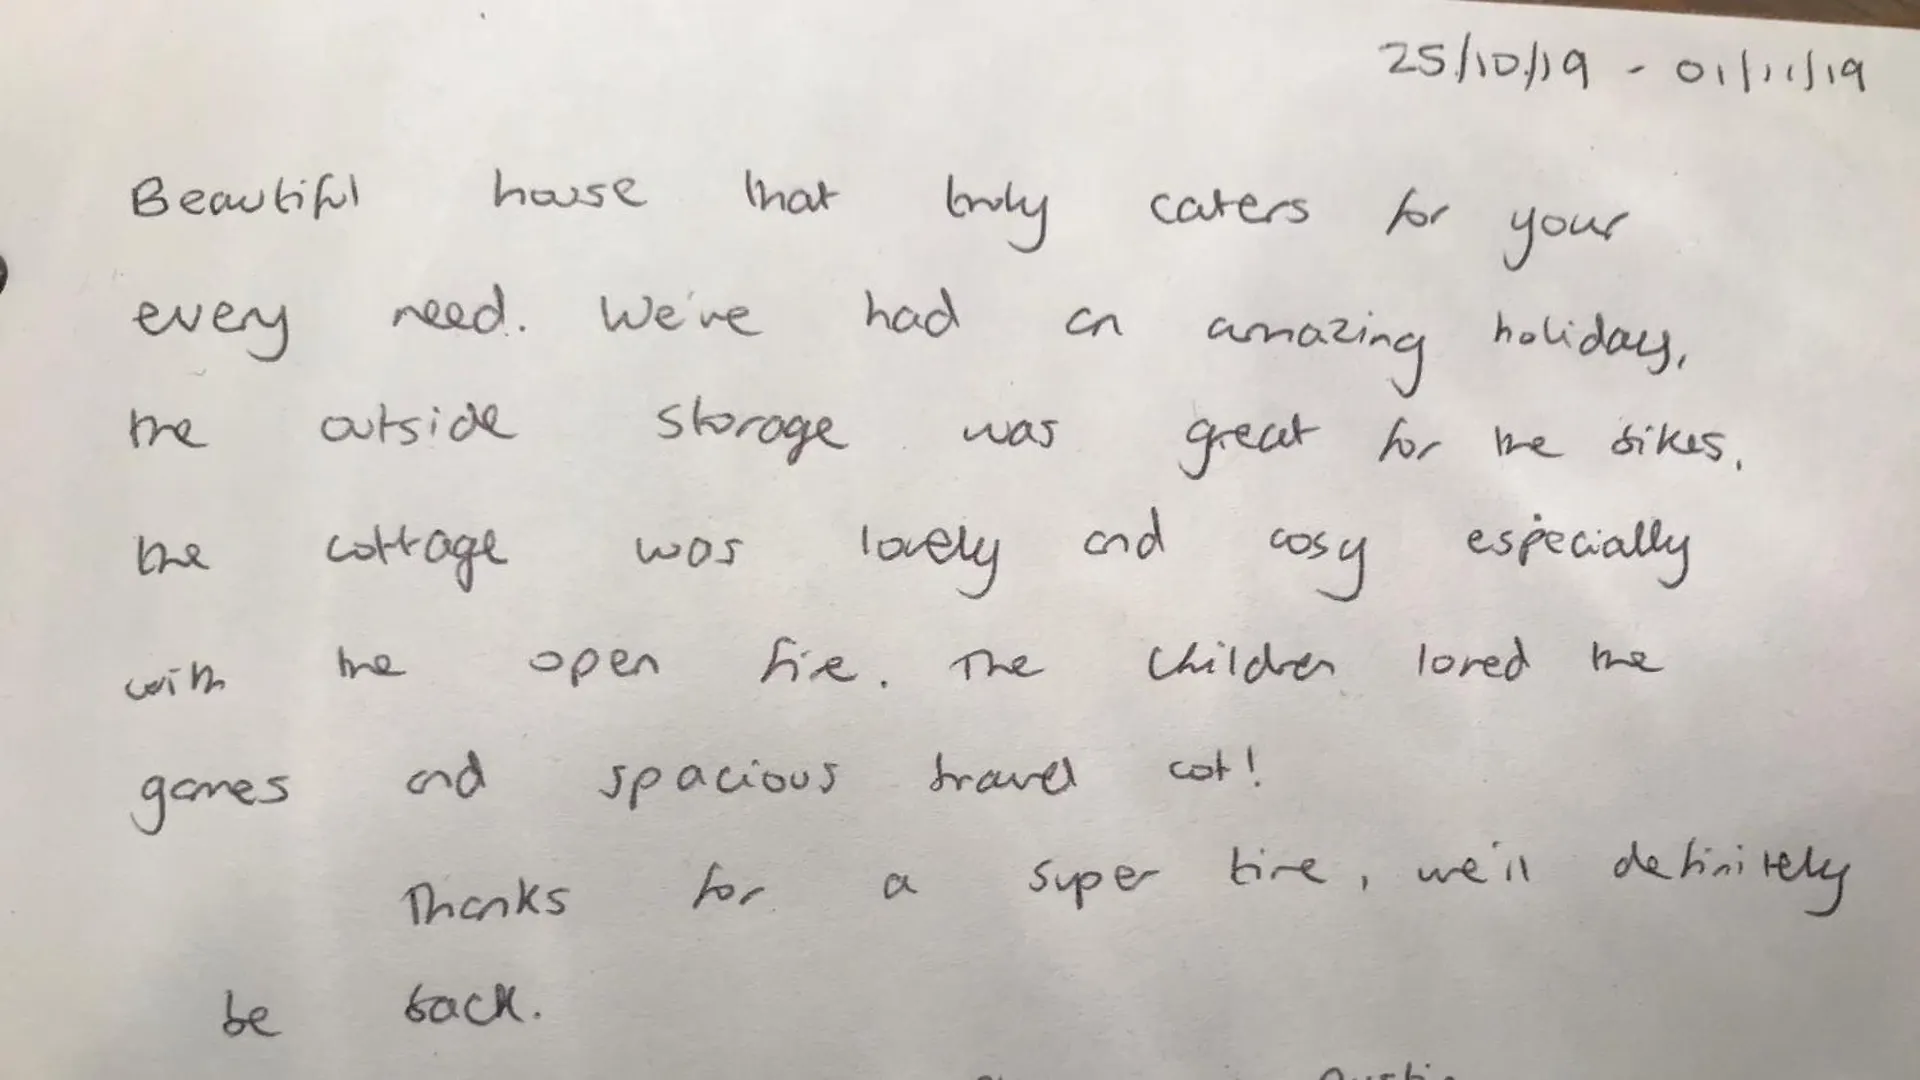 25/10/19 - 01/11/19
Beautiful house that truly caters for your
every need. We've had an amazing holiday,
the outside storage was great for the bikes,
the cottage was lovely and cosy especially
with the open fire. The children loved the
games and spacious travel cot!
Thanks for a super time, we'll definitely
be back.